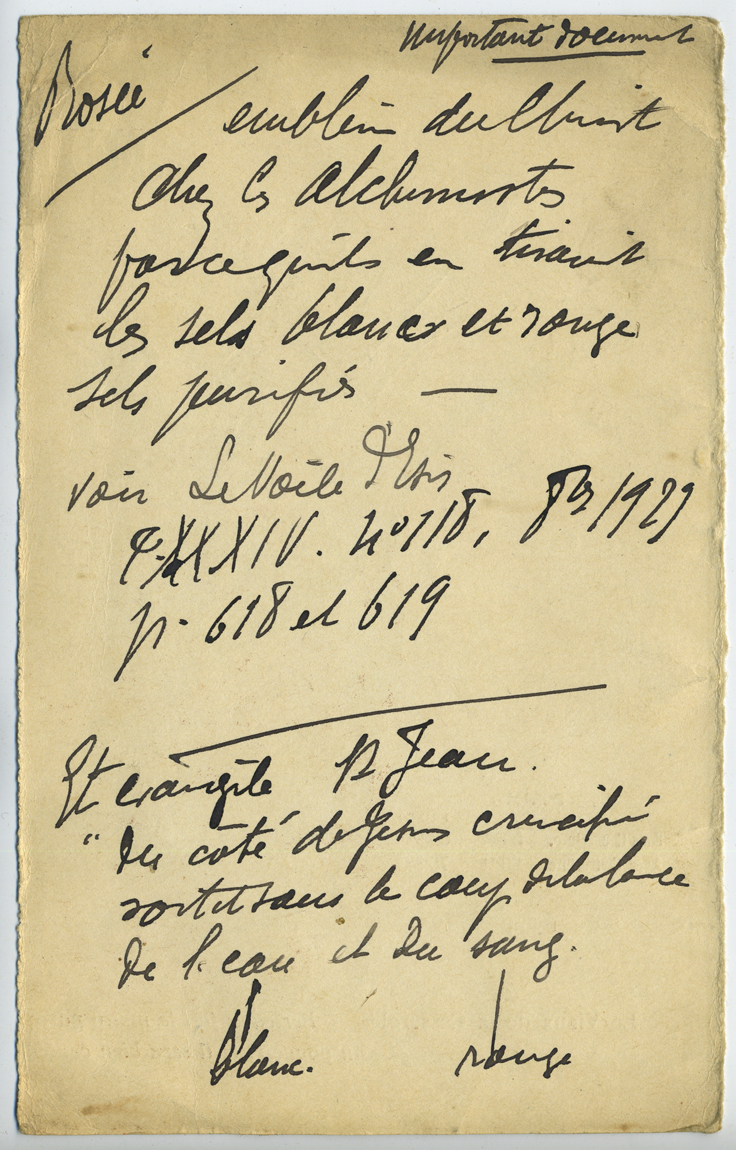 Important document
Rosée
emblème du Christ
chez les Alchimistes
parce qu'ils en tiraient
les sels blancs et rouge
sels purifiés —
voir Le Voile d'Isis
T. XXXIV. n° 118, 8bre 1929
p. 618 et 619
Et evangile St Jean.
" Du côté de Jesus crucifié
sortit sous le coup de la lance
de l'eau et du sang.
blanc. rouge